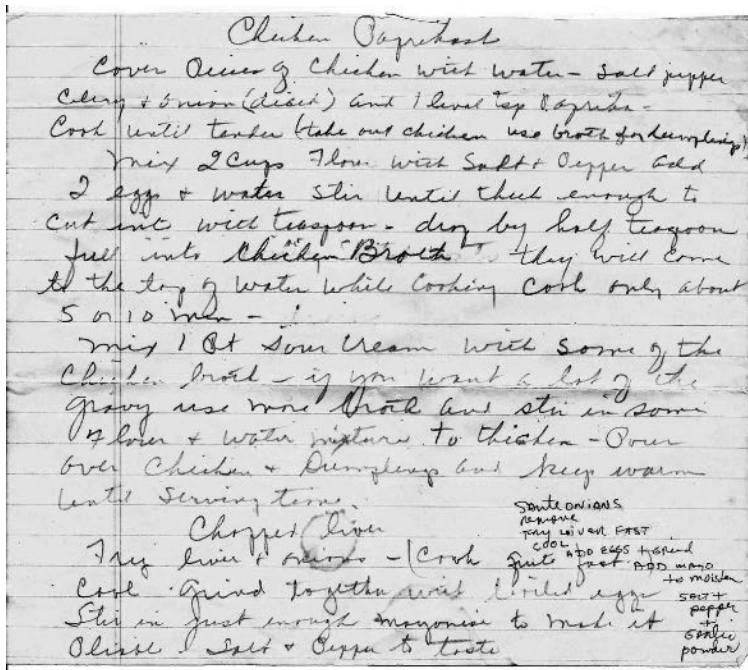 Chicken Paprikash
Cover Pieces of Chicken with water - salt pepper
Celery + onion (diced) and 1 level tsp Paprika -
Cook until tender (take out chicken use broth for dumplings)
Mix 2 Cups Flour with Salt + Pepper add
2 eggs + water Stir until thick enough to
cut into with teaspoon - drop by half teaspoon
full into Chicken Broth they will come
to the top of water while Cooking Cook only about
5 or 10 min -
Mix 1 Pt Sour Cream with some of the
Chicken broth - if you want a lot of the
gravy use more broth and stir in some
Flour + water mixture to thicken - Pour
over Chicken + Dumplings and keep warm
until serving time.
Chopped liver
Fry liver + onions - (Cook quite fast
Cool Grind together with boiled eggs
Stir in just enough mayonise to make it
Salt & Pepper to taste
SAUTE ONIANS
remove
FRY LIVER FAST
COOL ADD EGGS + Grind
ADD MAYO
to moisten
SALT +
pepper
+
GARLIC
powder